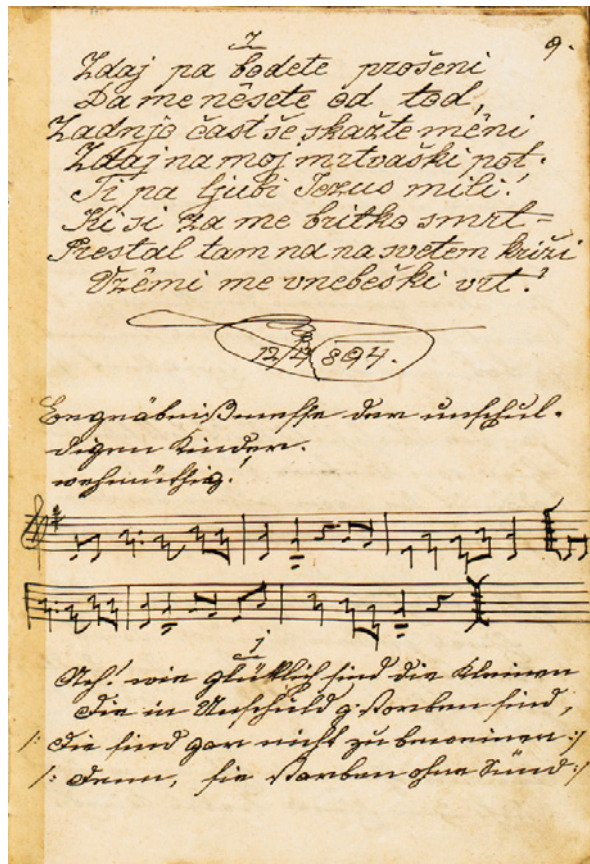 7
9.
Zdaj pa bodete prošeni
Da me nêsete od tod,
Zadnjo čast še skažte mêni
Zdaj na moj mrtvaški pot.
Ti pa ljubi Jezus mili!
Ki si za me britko smrt=
Prestal tam na na svetem križi
Vzêmi me vnebeški vrt!
12/4 894.
Begräbnißmesse der unschul-
digen Kinder.
wehmüthig!
1
Ach! wie glücklich sind die Kleinen
Die in Unschuld gestorben sind,
/: Die sind gar nicht zu beweinen :/
/: Denn, sie starben ohne Sünd :/